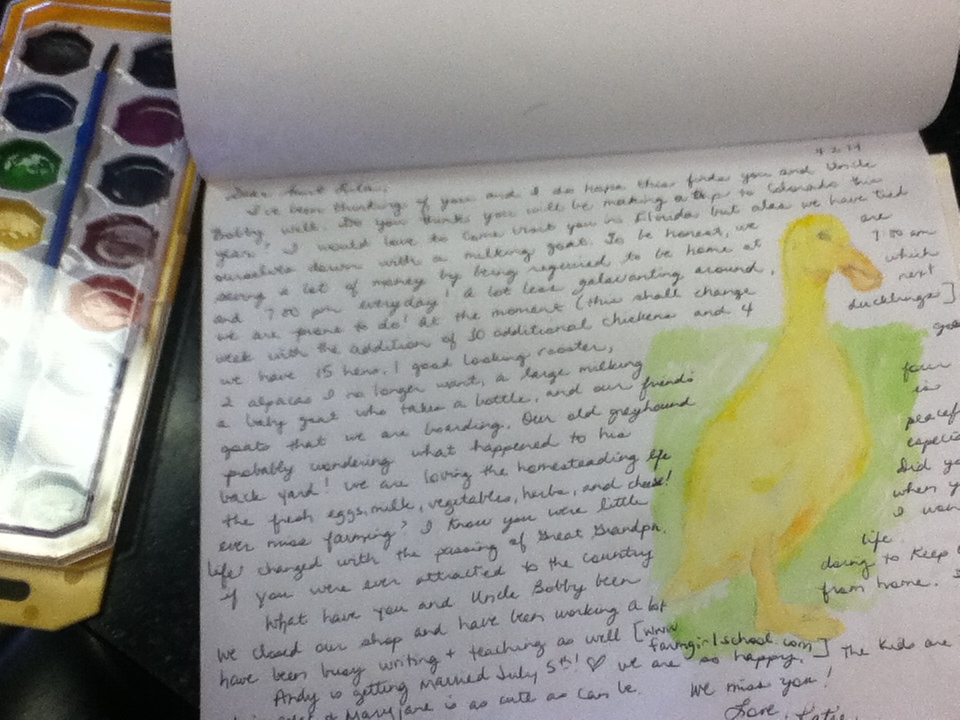 4.2.14
Dear Aunt Lila,
I've been thinking of you and I do hope this finds you and Uncle
Bobby well. Do you think you will be making a trip to Colorado this
year, I would love to come visit you in Florida but alas we have tied
ourselves down with a milking goat. To be honest, we are
saving a lot of money by being required to be home at 7:00 am
and 7:00 pm everyday! A lot less galavanting around, which
we are prone to do! At the moment (this shall change next
week with the addition of 10 additional chickens and 4 ducklings]
we have 15 hens, 1 good looking rooster,
2 alpacas I no longer want, a large milking
a baby goat who takes a bottle, and our friends four
goats that we are boarding. Our old greyhound is
probably wondering what happened to his
back yard! We are loving the homesteading life
the fresh eggs, milk, vegetables, herbs, and cheese!
ever miss farming? I know you were little when
life changed with the passing of Great Grandpa. I
if you were ever attracted to the country life.
What have you and Uncle Bobby been doing to keep
We closed our shop and have been working a lot from home.
have been busy writing + teaching as well [www.
farmgirlschool.com]
Andy is getting married July 5th! ♡ We are so happy. The kids are
Maryjane is as cute as can be. We miss you!
Love, Katie